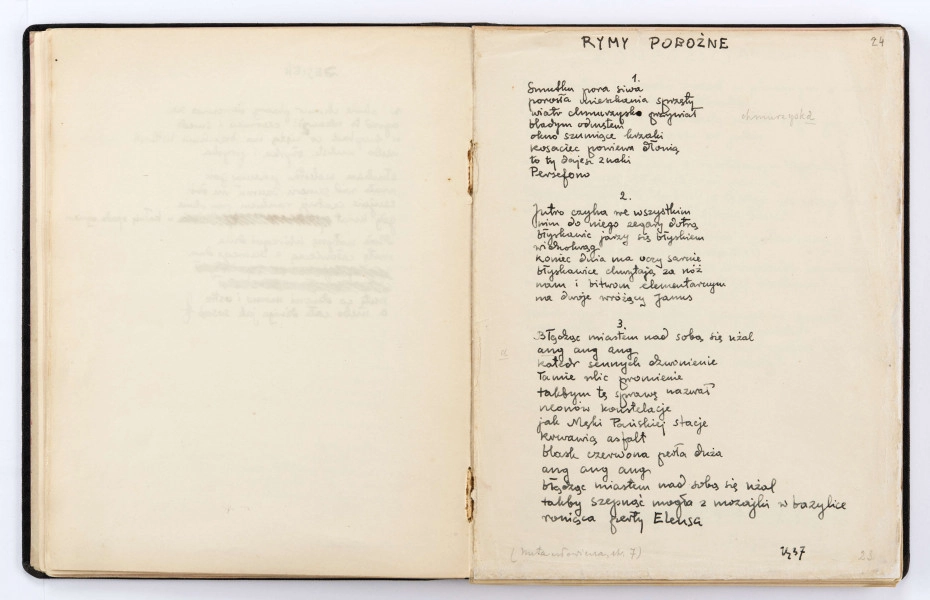 RYMY POBOŻNE
24
1.
Smutku pora siwa
porosła mieszkania sprzęty
wiatr chmurzysko przywiał
bladym odmętem
okno szumiące krzaki
kosaciec powiewa dłonią
to ty dajesz znaki
Persefono
2.
Jutro czyha we wszystkim
nim do niego zegary dotrą
błyskawic jarzy się błyskiem
widnokrąg
koniec dnia ma oczy sarnie
błyskawice chwytają za nóż
nam i bitwom elementarnym
na dwoje wróżący Janus
3.
Błądząc miastem nad sobą się użal
ang ang ang
katedr sennych dzwonienie
łamie ulic promienie
takbym tę sprawę nazwał
neonów konstelacje
jak Męki Pańskiej stacje
krwawią asfalt
blask czerwona perła duża
ang ang ang
błądząc miastem nad sobą się użal
takby szepnąć mogła z mozajki w bazylice
roniąca perły Eleusa
23